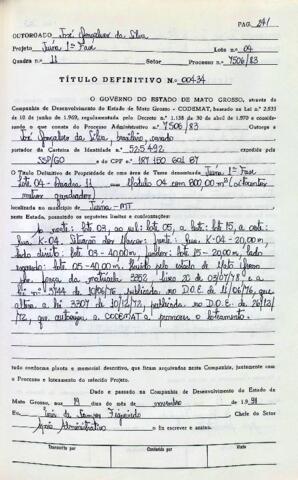 PAG. 241
OUTORGADO José Gonçalves da Silva
Projeto Juína 1ª Fase Lote n.º 04
Quadra n.º 11 Setor Processo n.º 7506/83
TÍTULO DEFINITIVO N.º 00434
O GOVERNO DO ESTADO DE MATO GROSSO, através da
Companhia de Desenvolvimento do Estado de Mato Grosso - CODEMAT, baseado na Lei n.º 2.933
de 10 de junho de 1.969, regulamentada pelo Decreto n.º 1.138 de 30 de abril de 1.970 e conside-
rando o que consta do Processo Administrativo n.º 7506/83 Outorga a
José Gonçalves da Silva, brasileiro, casado
portador da Carteira de Identidade n.º 525.492 expedida pela
SSP/GO e do CPF n.º 187 150 601 87
O Título Definitivo de Propriedade de uma área de Terras denominada Juína 1ª Fase
Lote 04 - Quadra 11 Módulo 04 com 800,00 m² (oitocentos
metros quadrados)
localizada no município de Juína - MT
neste Estado, passando os seguintes limites e confrontações:
ao norte: lote 03, ao sul: lote 05, a leste: lote 15, a oeste:
Rua K-04. frente: Rua K-04 - 20,00 m,
lado direito: lote 03 - 40,00 m, fundos: lote 15 - 20,00 m, lado
esquerdo: lote 05 - 40,00 m. pelo estado de Mato Grosso
por força da matrícula livro 20 de 03/07/78 a
lei nº 3744 de 10/06/76 publicada no D.O.E de 11/06/76, que
altera a lei 3307 de 10/12/72, publicada no D.O.E de 26/12/
72, que autoriza a CODEMAT a promover o loteamento.
tudo conforme planta e memorial descritivo, que ficam arquivados nesta Companhia, juntamente com
o Processo e loteamento do referido Projeto.
Dado e passado na Companhia de Desenvolvimento do Estado de
Mato Grosso, aos 19 dias do mês de novembro de 1.991
Eu, de Campos Figueiredo Chefe do Setor
Apoio Administrativo o fiz escrever e assino.
Transcrito por
Conferido por
Visto